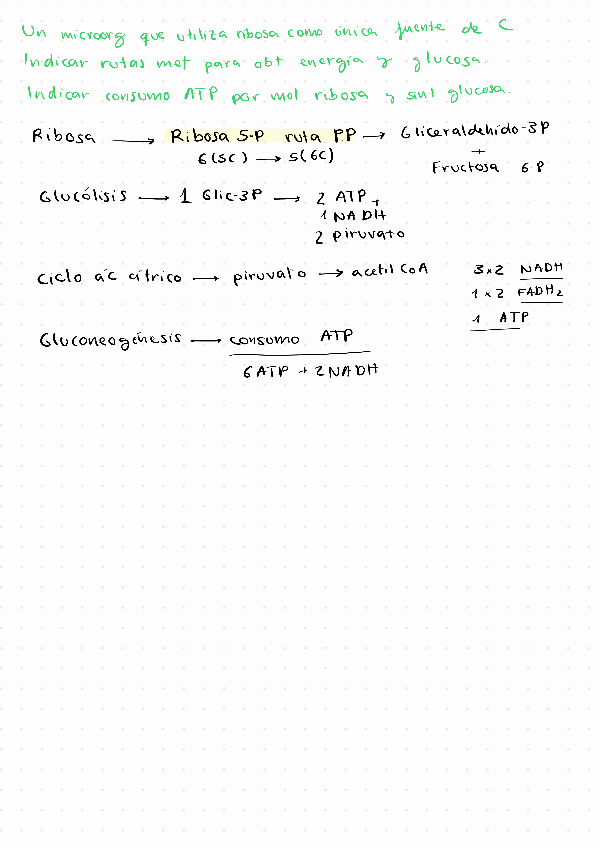 Un microorg que utiliza ribosa como única fuente de C
Indicar rutas met para obt energía y glucosa.
Indicar consumo ATP por mol ribosa y sint glucosa.
Ribosa → Ribosa 5-P ruta PP → Gliceraldehído-3P
+
6(5C) → 5(6C)
Fructosa 6P
Glucólisis → 1 Glic-3P → 2 ATP +
1 NADH
2 piruvato
Ciclo ác cítrico → piruvato → acetil CoA
3x2 NADH
1x2 FADH₂
1 ATP
Gluconeogénesis → consumo ATP
6 ATP + 2 NADH